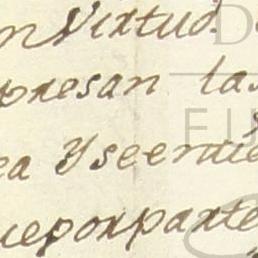 n Virtud
presan las
ea Yseentie
ueporparte